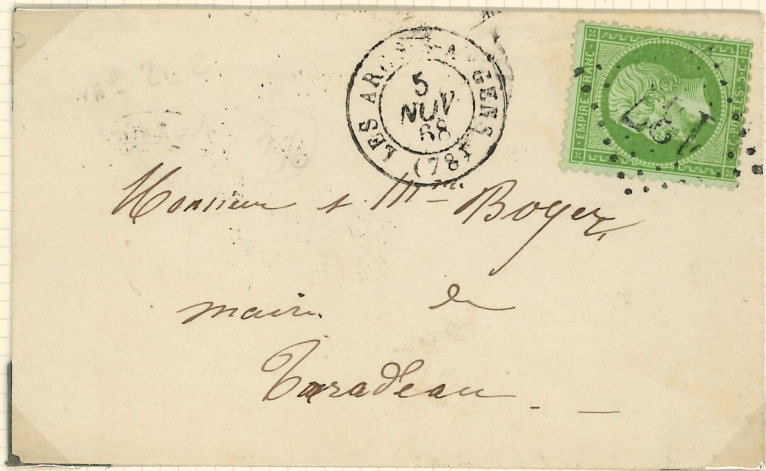 LES ARCS-S-ARGENS (78)
5
NOV
68
EMPIRE FRANC.
POSTES 5 C.
Monsieur & Mme Boyer,
maire de
Taradeau